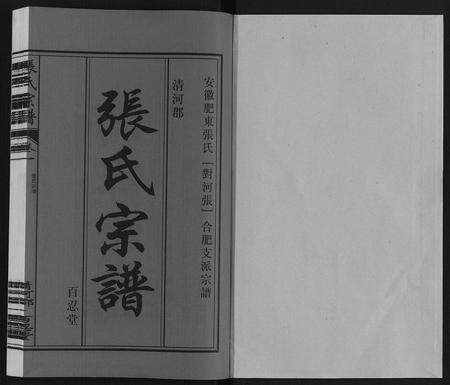 安徽肥東張氏「對河張」合肥支派宗譜
清河郡
張氏宗譜
百忍堂
張氏宗譜